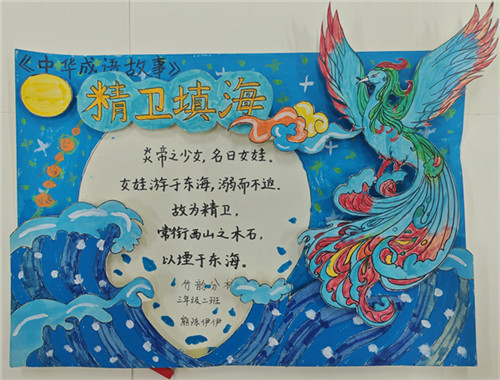 《中华成语故事》
精卫填海
炎帝之少女,名曰女娃。
女娃游于东海,溺而不返.
故为精卫,
常衔西山之木石,
以堙于东海。
竹韵分校
三年级二班
熊 伊伊